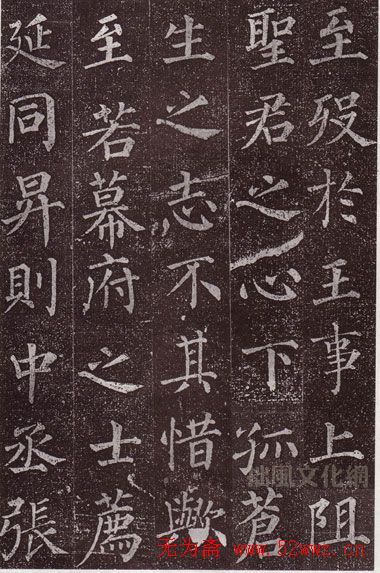 至殁於王事上阻
聖君之心下孤蒼
生之志不其惜歟
至若幕府之士薦
延同昇則中丞張
拙風文化網
无为斋 www.52wwz.cn